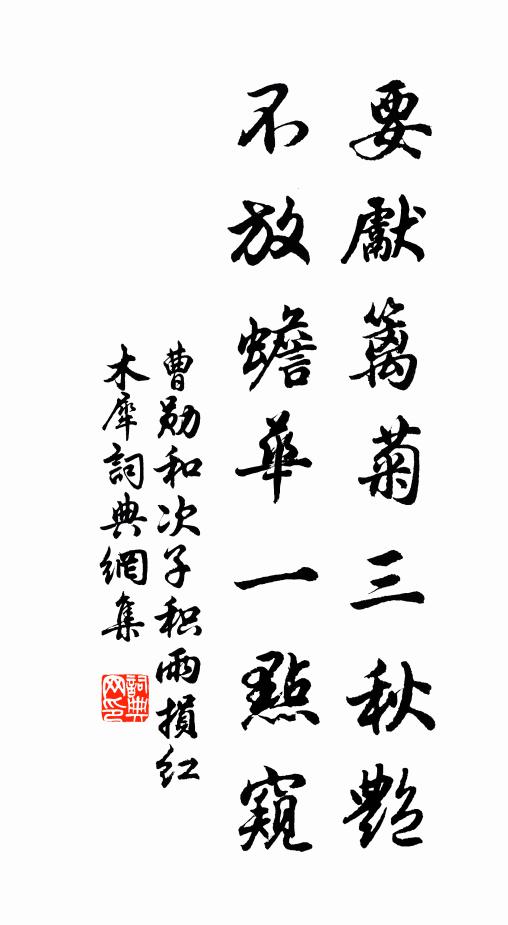 要獻籬菊三秋艷
不放蟾華一點窺
曹勛和次子积雨損红
木犀詞典網集
詞典網印